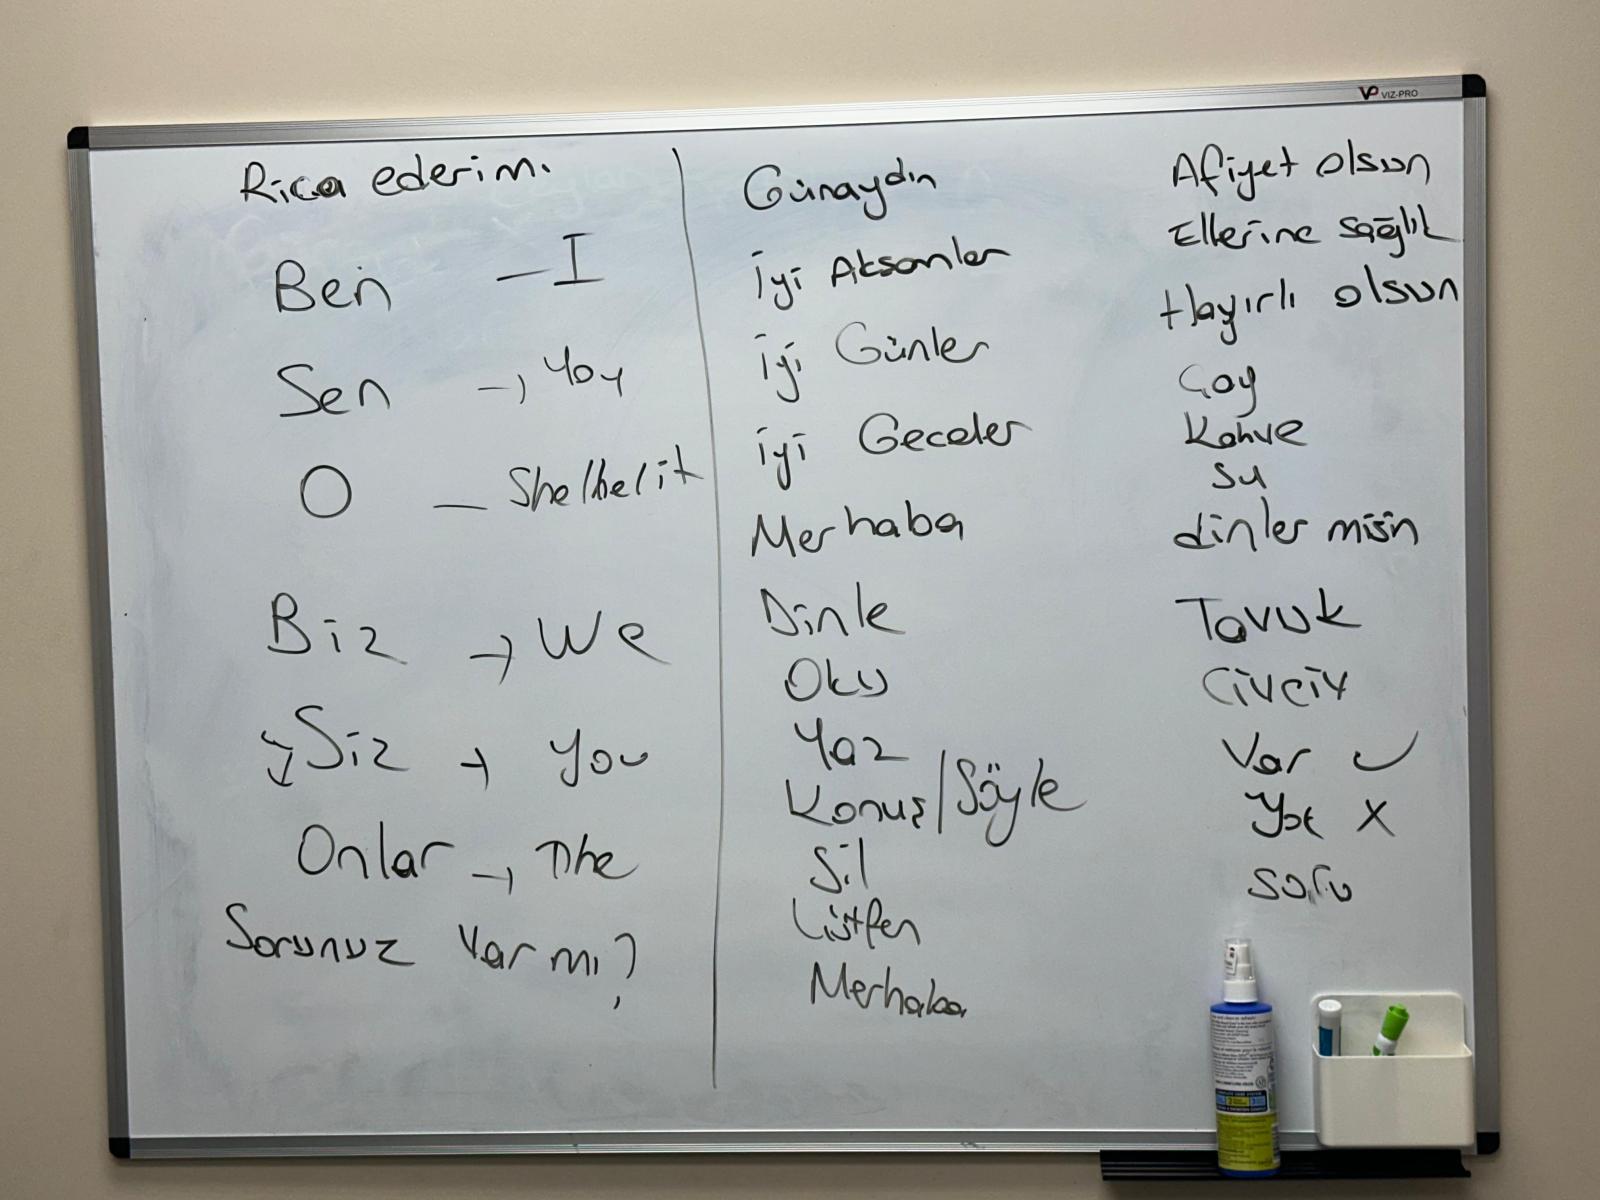 VIZ-PRO
Rica ederim.
Ben — I
Sen → You
O — She/he/it
Biz → We
Siz → You
Onlar → The
Sorunuz Var mı?
Günaydın
iyi Aksamler
iyi Günler
iyi Geceler
Merhaba
Dinle
Oku
Yaz
Konuş/Söyle
Sil
Lütfen
Merhaba
Afiyet olsun
Ellerine sağlık
Hayırlı olsun
Çay
Kahve
Su
dinler misin
Tavuk
Civciv
Var ✓
Yok X
soru